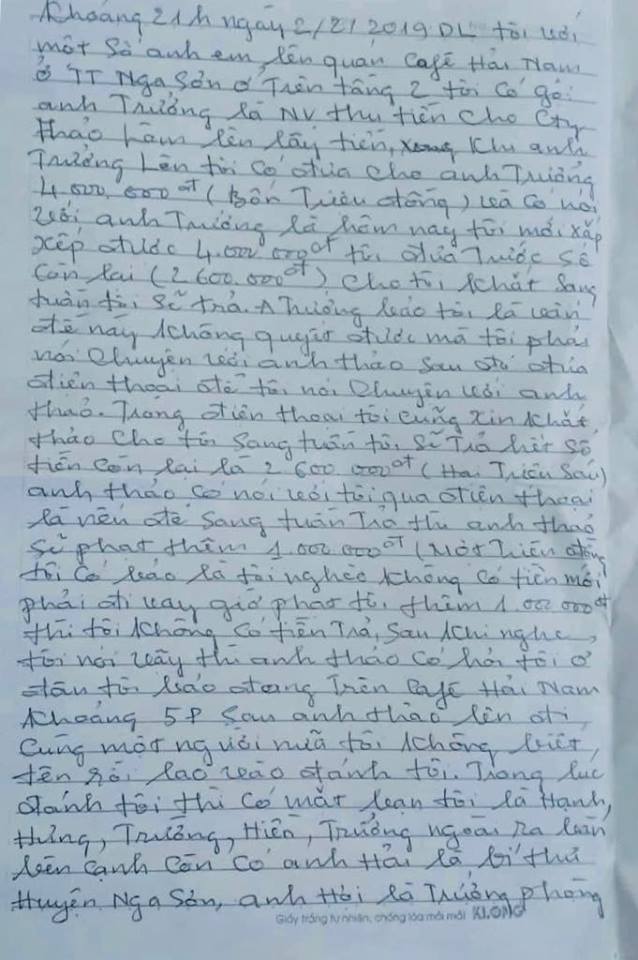 Khoảng 21h ngày 2/2/2019 DL tôi với
một số anh em, lên quán Café Hải Nam
ở TT Nga Sơn ở trên tầng 2 tôi có gọi
anh Trưởng là NV thu tiền cho Cty
thảo lên lấy tiền, xong khi anh
Trưởng lên tôi có đưa cho anh Trưởng
4.000.000đ (Bốn Triệu đồng) và có nói
với anh Trưởng là hôm nay tôi mới xắp
xếp được 4.000.000đ tôi đưa trước số
còn lại (2.600.000đ) cho tôi khất sang
tuần tôi sẽ trả. A Trưởng bảo tôi là vấn
đề này không quyết được mà tôi phải
nói chuyện với anh thảo sau đó đưa
điện thoại để tôi nói chuyện với anh
thảo. Trong điện thoại tôi cũng xin khất
thảo cho tôi sang tuần tôi sẽ Trả hết số
tiền còn lại là 2.600.000đ (Hai Triệu Sáu)
anh thảo có nói với tôi qua điện thoại
là nếu để sang tuần Trả thì anh thảo
sẽ phạt thêm 1.000.000đ (Một Triệu đồng
tôi có bảo là tôi nghèo không có tiền mới
phải đi vay giờ phạt tôi thêm 1.000.000đ
thì tôi không có tiền Trả, sau khi nghe,
tôi nói vậy thì anh thảo có hỏi tôi ở
đâu tôi bảo đang Trên Café Hải Nam
khoảng 5P sau anh thảo lên đi,
cùng một người nữa tôi không biết,
tên rồi lao vào đánh tôi. Trong lúc
đánh tôi thì có mặt bạn tôi là Hạnh,
Hưng, Trường, Hiền, Trưởng ngoài ra bàn
bên cạnh còn có anh Hải là bí thư
Huyện Nga Sơn, anh Hói là Trưởng phòng
Giấy trắng tự nhiên, chống lóa mỏi mắt KLONG